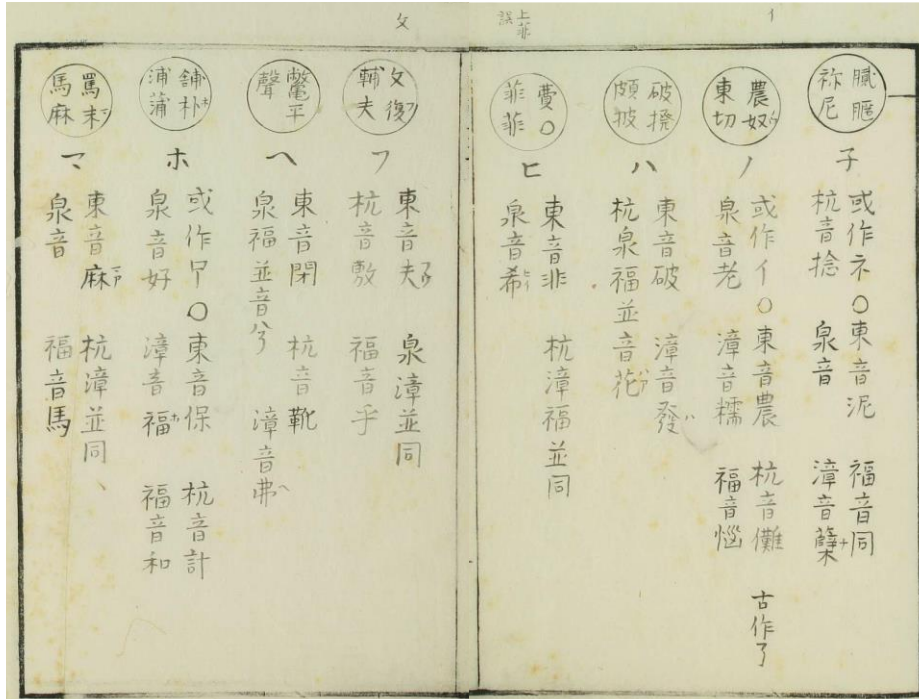 イ
上菲
誤
膩脤
祢尼
子
或作ネ〇東音泥 福音同
杭音捻 泉音 漳音蘖ナ
農奴ウ
東切
ノ
或作イ〇東音農 杭音儺 古作了
泉音老 漳音糯 福音惱
破撓
頗披
ハ
東音破 漳音發バ
杭泉福並音花ハア
費〇
菲菲
ヒ
東音非 杭漳福並同
泉音希ヒイ
攵
攵復フ
輔夫
フ
東音夫フウ 泉漳並同
杭音敷 福音乎
鼈平
聲
ヘ
東音閉 杭音靴
泉福並音兮 漳音弗ヘ
舖朴ホ
浦蒲
ホ
或作P〇東音保 杭音計
泉音好 漳音福ホ 福音和
罵末マ
馬麻
マ
東音麻マア 杭漳並同
泉音 福音馬